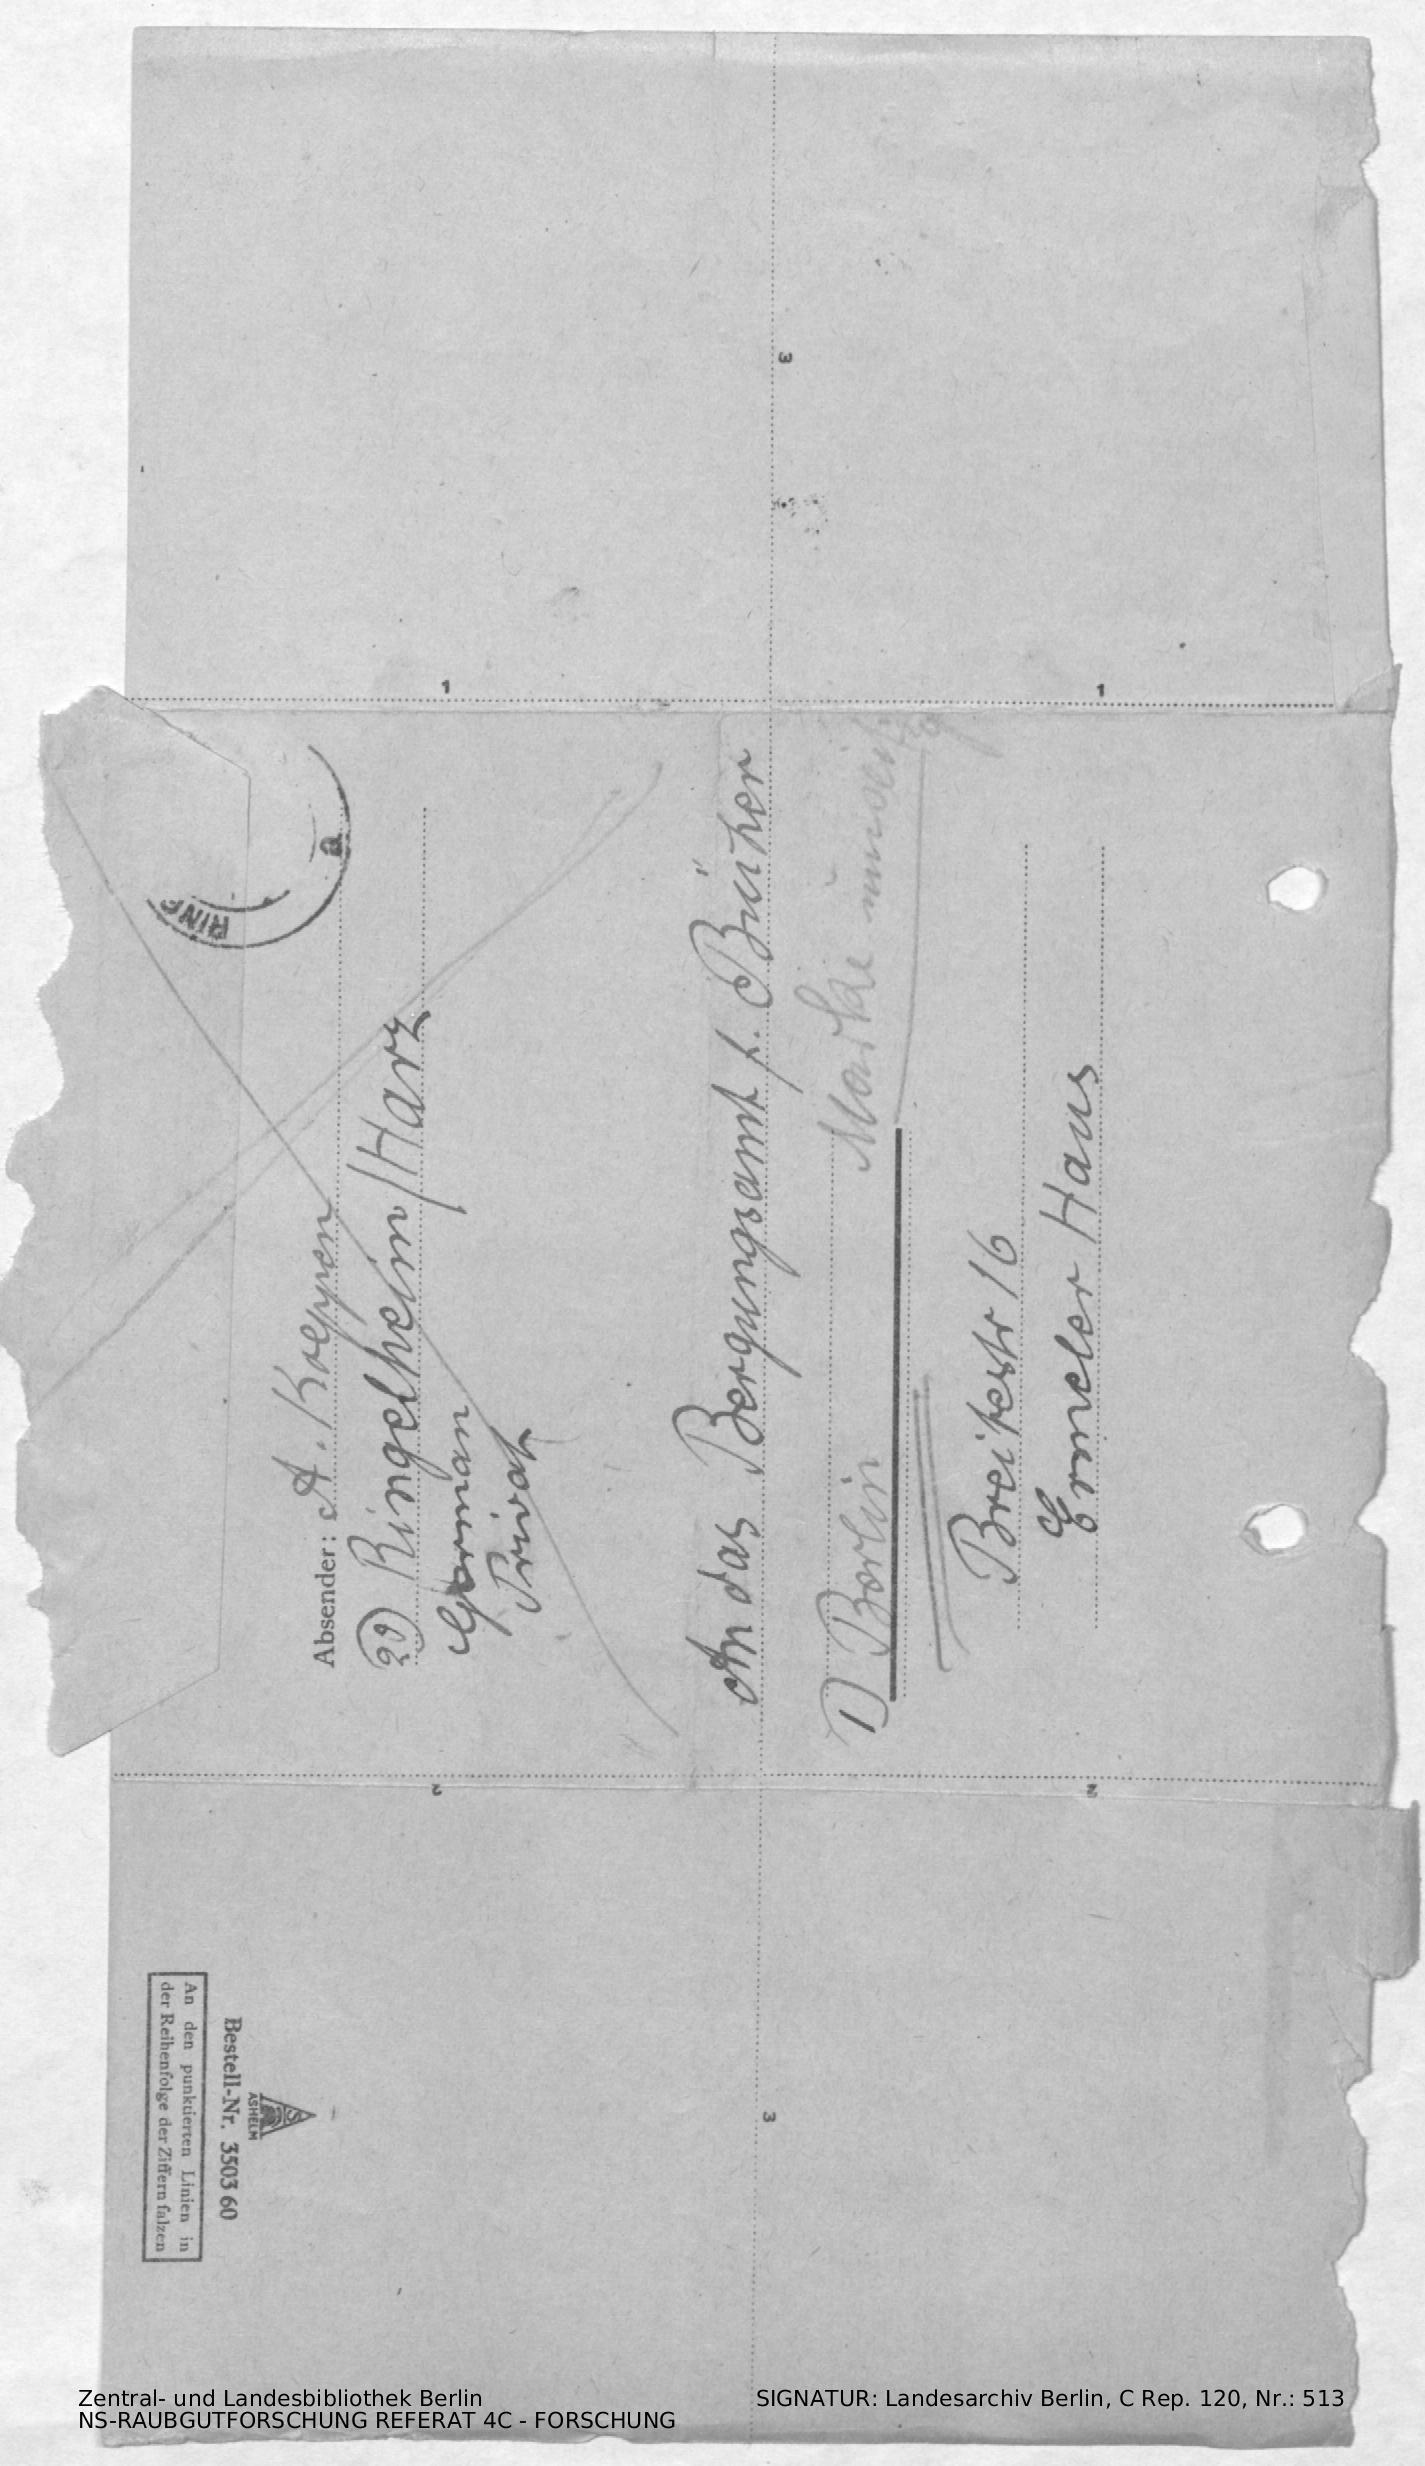 RING
a
Absender: A. Koeppen
20 Ringelheim/Harz
German
Privat
An das Bergungsamt f. Bücher
Marke
D Berlin
Breitestr 16
Ermeler Haus
1
1
2
2
3
3
ASHELM
Bestell-Nr. 3503 60
An den punktierten Linien in
der Reihenfolge der Ziffern falzen
Zentral- und Landesbibliothek Berlin
NS-RAUBGUTFORSCHUNG REFERAT 4C - FORSCHUNG
SIGNATUR: Landesarchiv Berlin, C Rep. 120, Nr.: 513